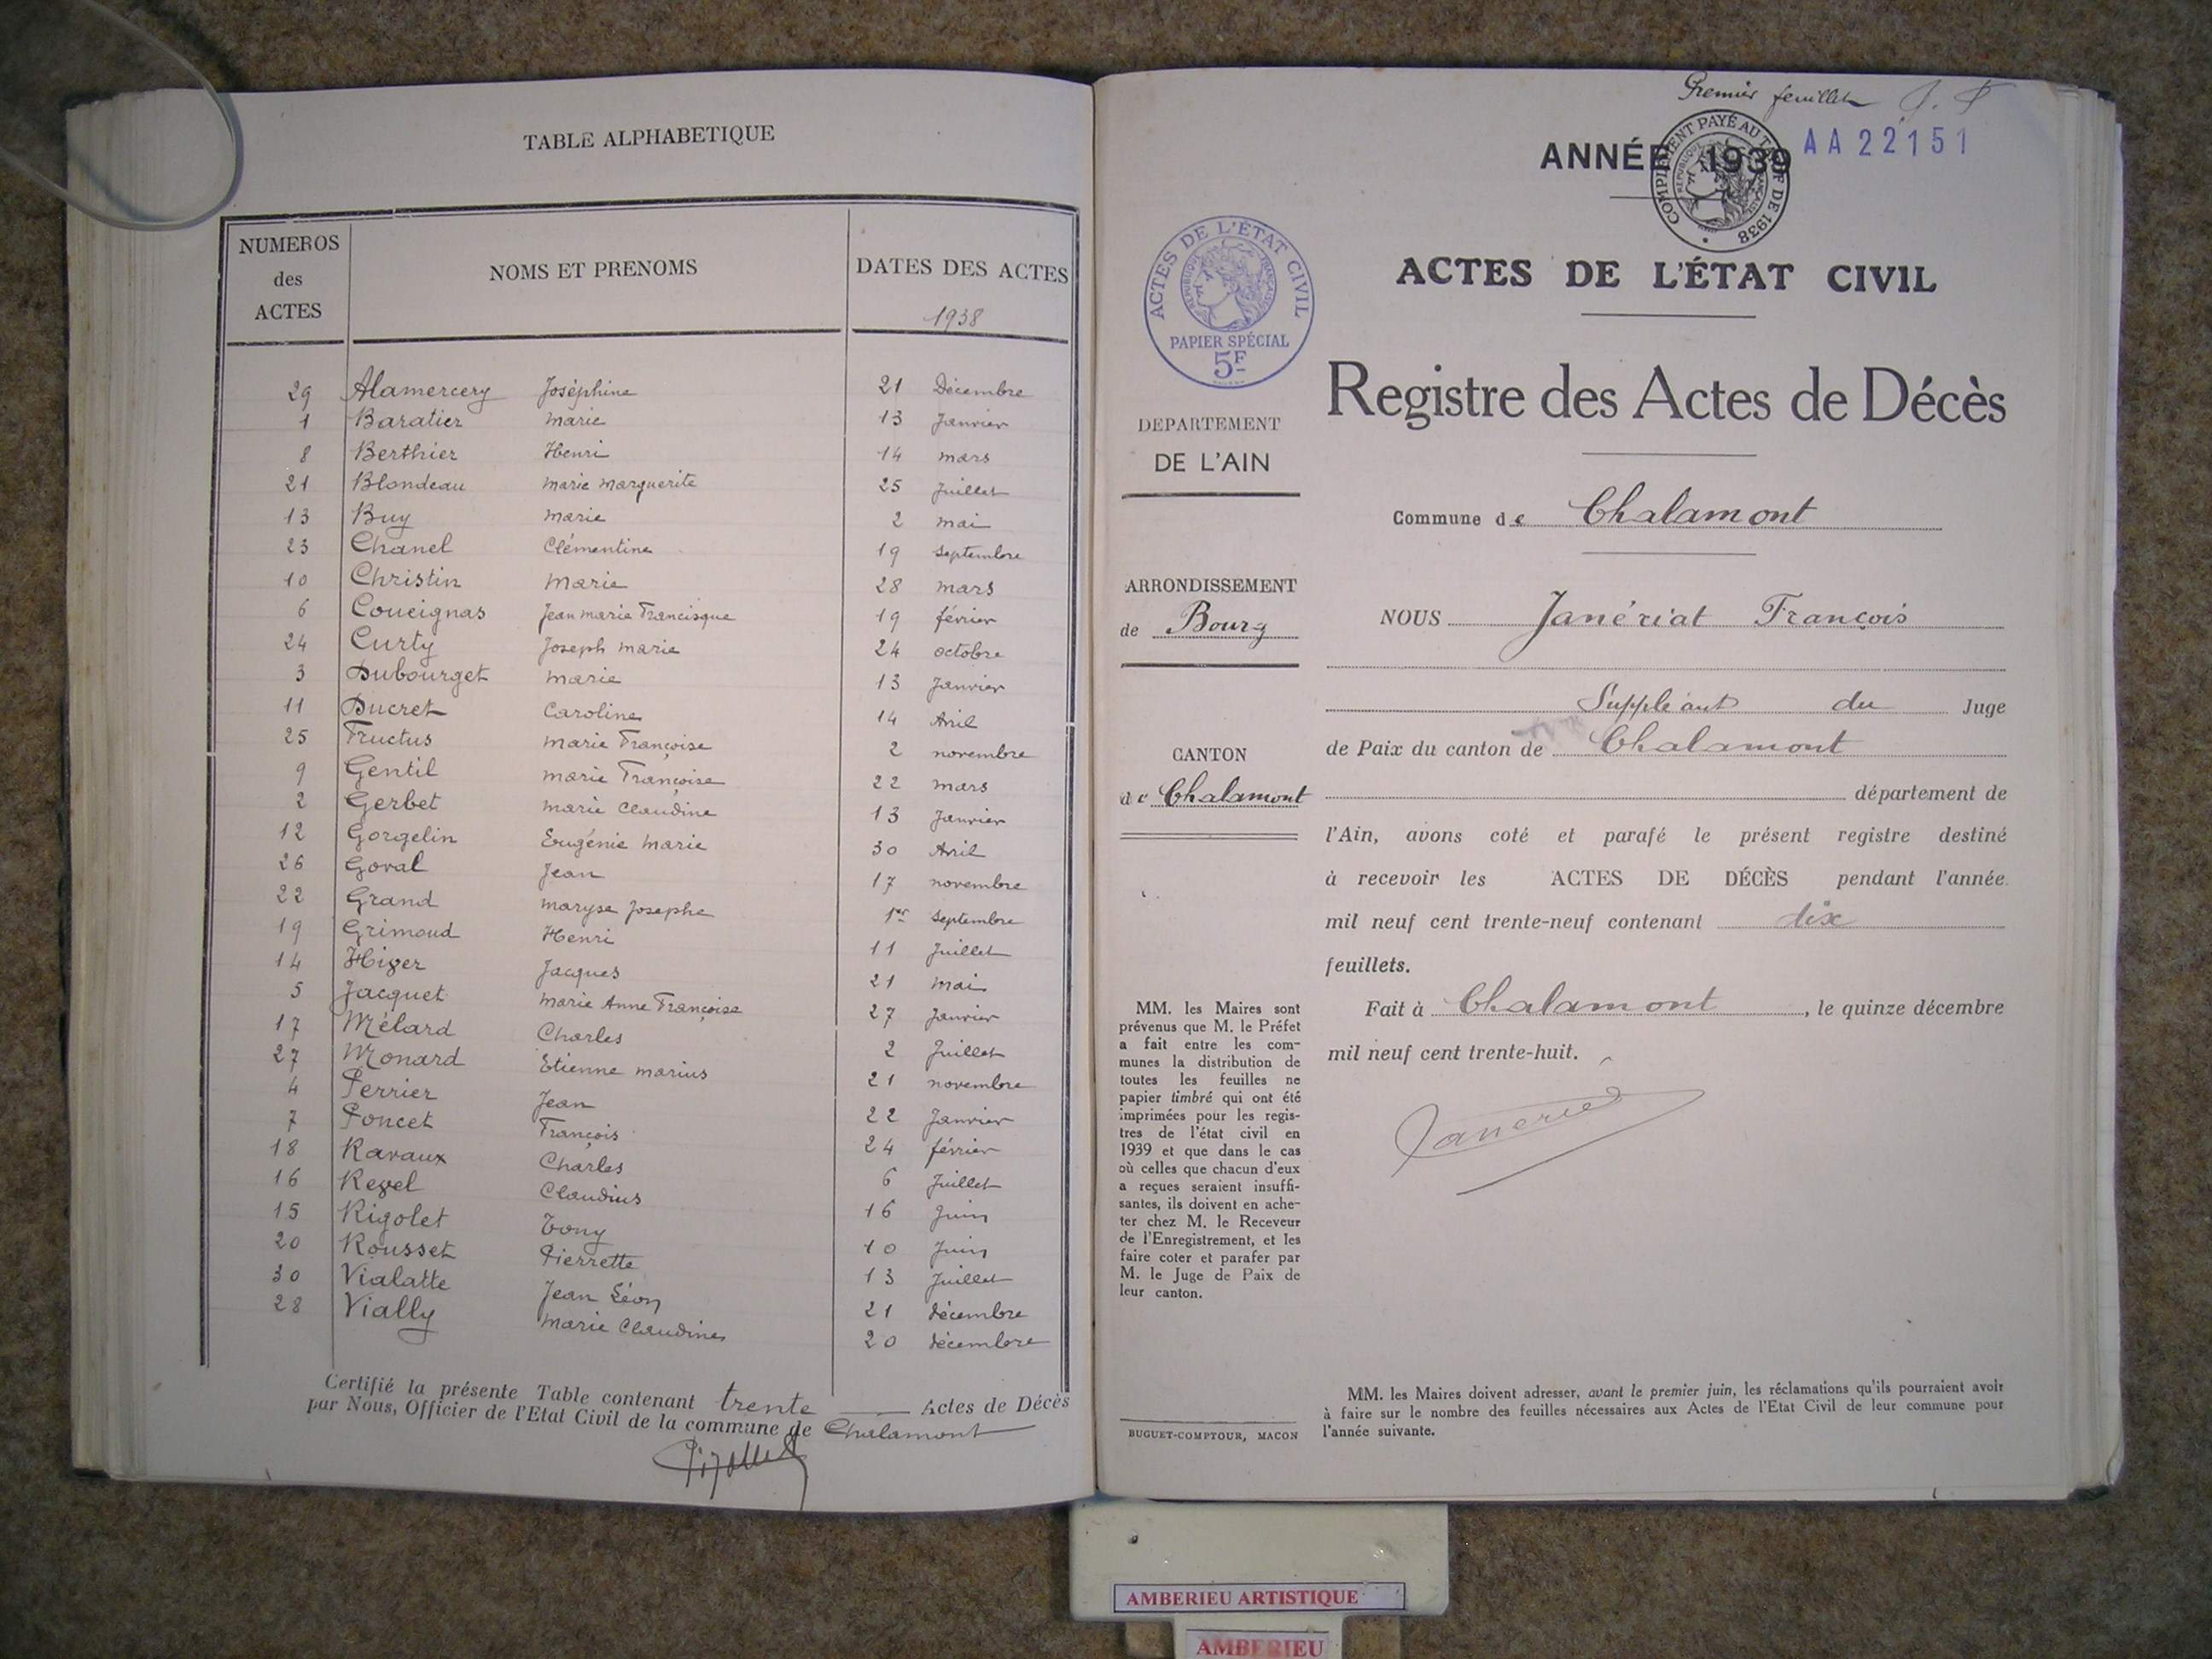 TABLE ALPHABETIQUE
NUMEROS des ACTES NOMS ET PRENOMS DATES DES ACTES
1938
29 Alamercery Joséphine 21 Décembre
1 Baratier Marie 13 Janvier
8 Berthier Henri 14 mars
21 Blondeau Marie Marguerite 25 Juillet
13 Buy Marie 2 mai
23 Chanel Clémentine 19 septembre
10 Christin Marie 28 mars
6 Coucignas Jean Marie Francisque 19 février
24 Curty Joseph Marie 24 octobre
3 Dubourget Marie 13 Janvier
11 Ducret Caroline 14 Avril
25 Fructus Marie Françoise 2 novembre
9 Gentil Marie Françoise 22 mars
2 Gerbet Marie Claudine 13 Janvier
12 Gorgelin Eugénie Marie 30 Avril
26 Goval Jean 17 novembre
22 Grand Maryse Josephe 1er septembre
19 Grimoud Henri 11 Juillet
14 Higer Jacques 21 mai
5 Jacquet Marie Anne Françoise 27 Janvier
17 Mélard Charles 2 Juillet
27 Monard Etienne Marius 21 novembre
4 Perrier Jean 22 Janvier
7 Poncet François 24 février
18 Ravaux Charles 6 Juillet
16 Revel Claudius 16 Juin
15 Rigolet Tony 10 Juin
20 Rousset Pierrette 13 Juillet
30 Vialatte Jean Léon 21 décembre
28 Vially Marie Claudine 20 décembre
Certifié la présente Table contenant trente Actes de Décès
par Nous, Officier de l'Etat Civil de la commune de Chalamont
Premier feuillet J. F
ANNÉE 1939
COMPLÉMENT PAYÉ AU TARIF DE 1938
AA 22151
ACTES DE L'ÉTAT CIVIL
RÉPUBLIQUE FRANÇAISE
PAPIER SPÉCIAL
5F
DEPARTEMENT
DE L'AIN
ARRONDISSEMENT
de Bourg
CANTON
de Chalamont
MM. les Maires sont
prévenus que M. le Préfet
a fait entre les com-
munes la distribution de
toutes les feuilles ne
papier timbré qui ont été
imprimées pour les regis-
tres de l'état civil en
1939 et que dans le cas
où celles que chacun d'eux
a reçues seraient insuffi-
santes, ils doivent en ache-
ter chez M. le Receveur
de l'Enregistrement, et les
faire coter et parafer par
M. le Juge de Paix de
leur canton.
BUGUET-COMPTOUR, MACON
ACTES DE L'ÉTAT CIVIL
Registre des Actes de Décès
Commune de Chalamont
NOUS Janériat François
Suppléant du Juge
de Paix du canton de Chalamont
département de
l'Ain, avons coté et parafé le présent registre destiné
à recevoir les ACTES DE DÉCÈS pendant l'année
mil neuf cent trente-neuf contenant dix
feuillets.
Fait à Chalamont, le quinze décembre
mil neuf cent trente-huit.
MM. les Maires doivent adresser, avant le premier juin, les réclamations qu'ils pourraient avoir
à faire sur le nombre des feuilles nécessaires aux Actes de l'Etat Civil de leur commune pour
l'année suivante.
AMBERIEU ARTISTIQUE
AMBERIEU